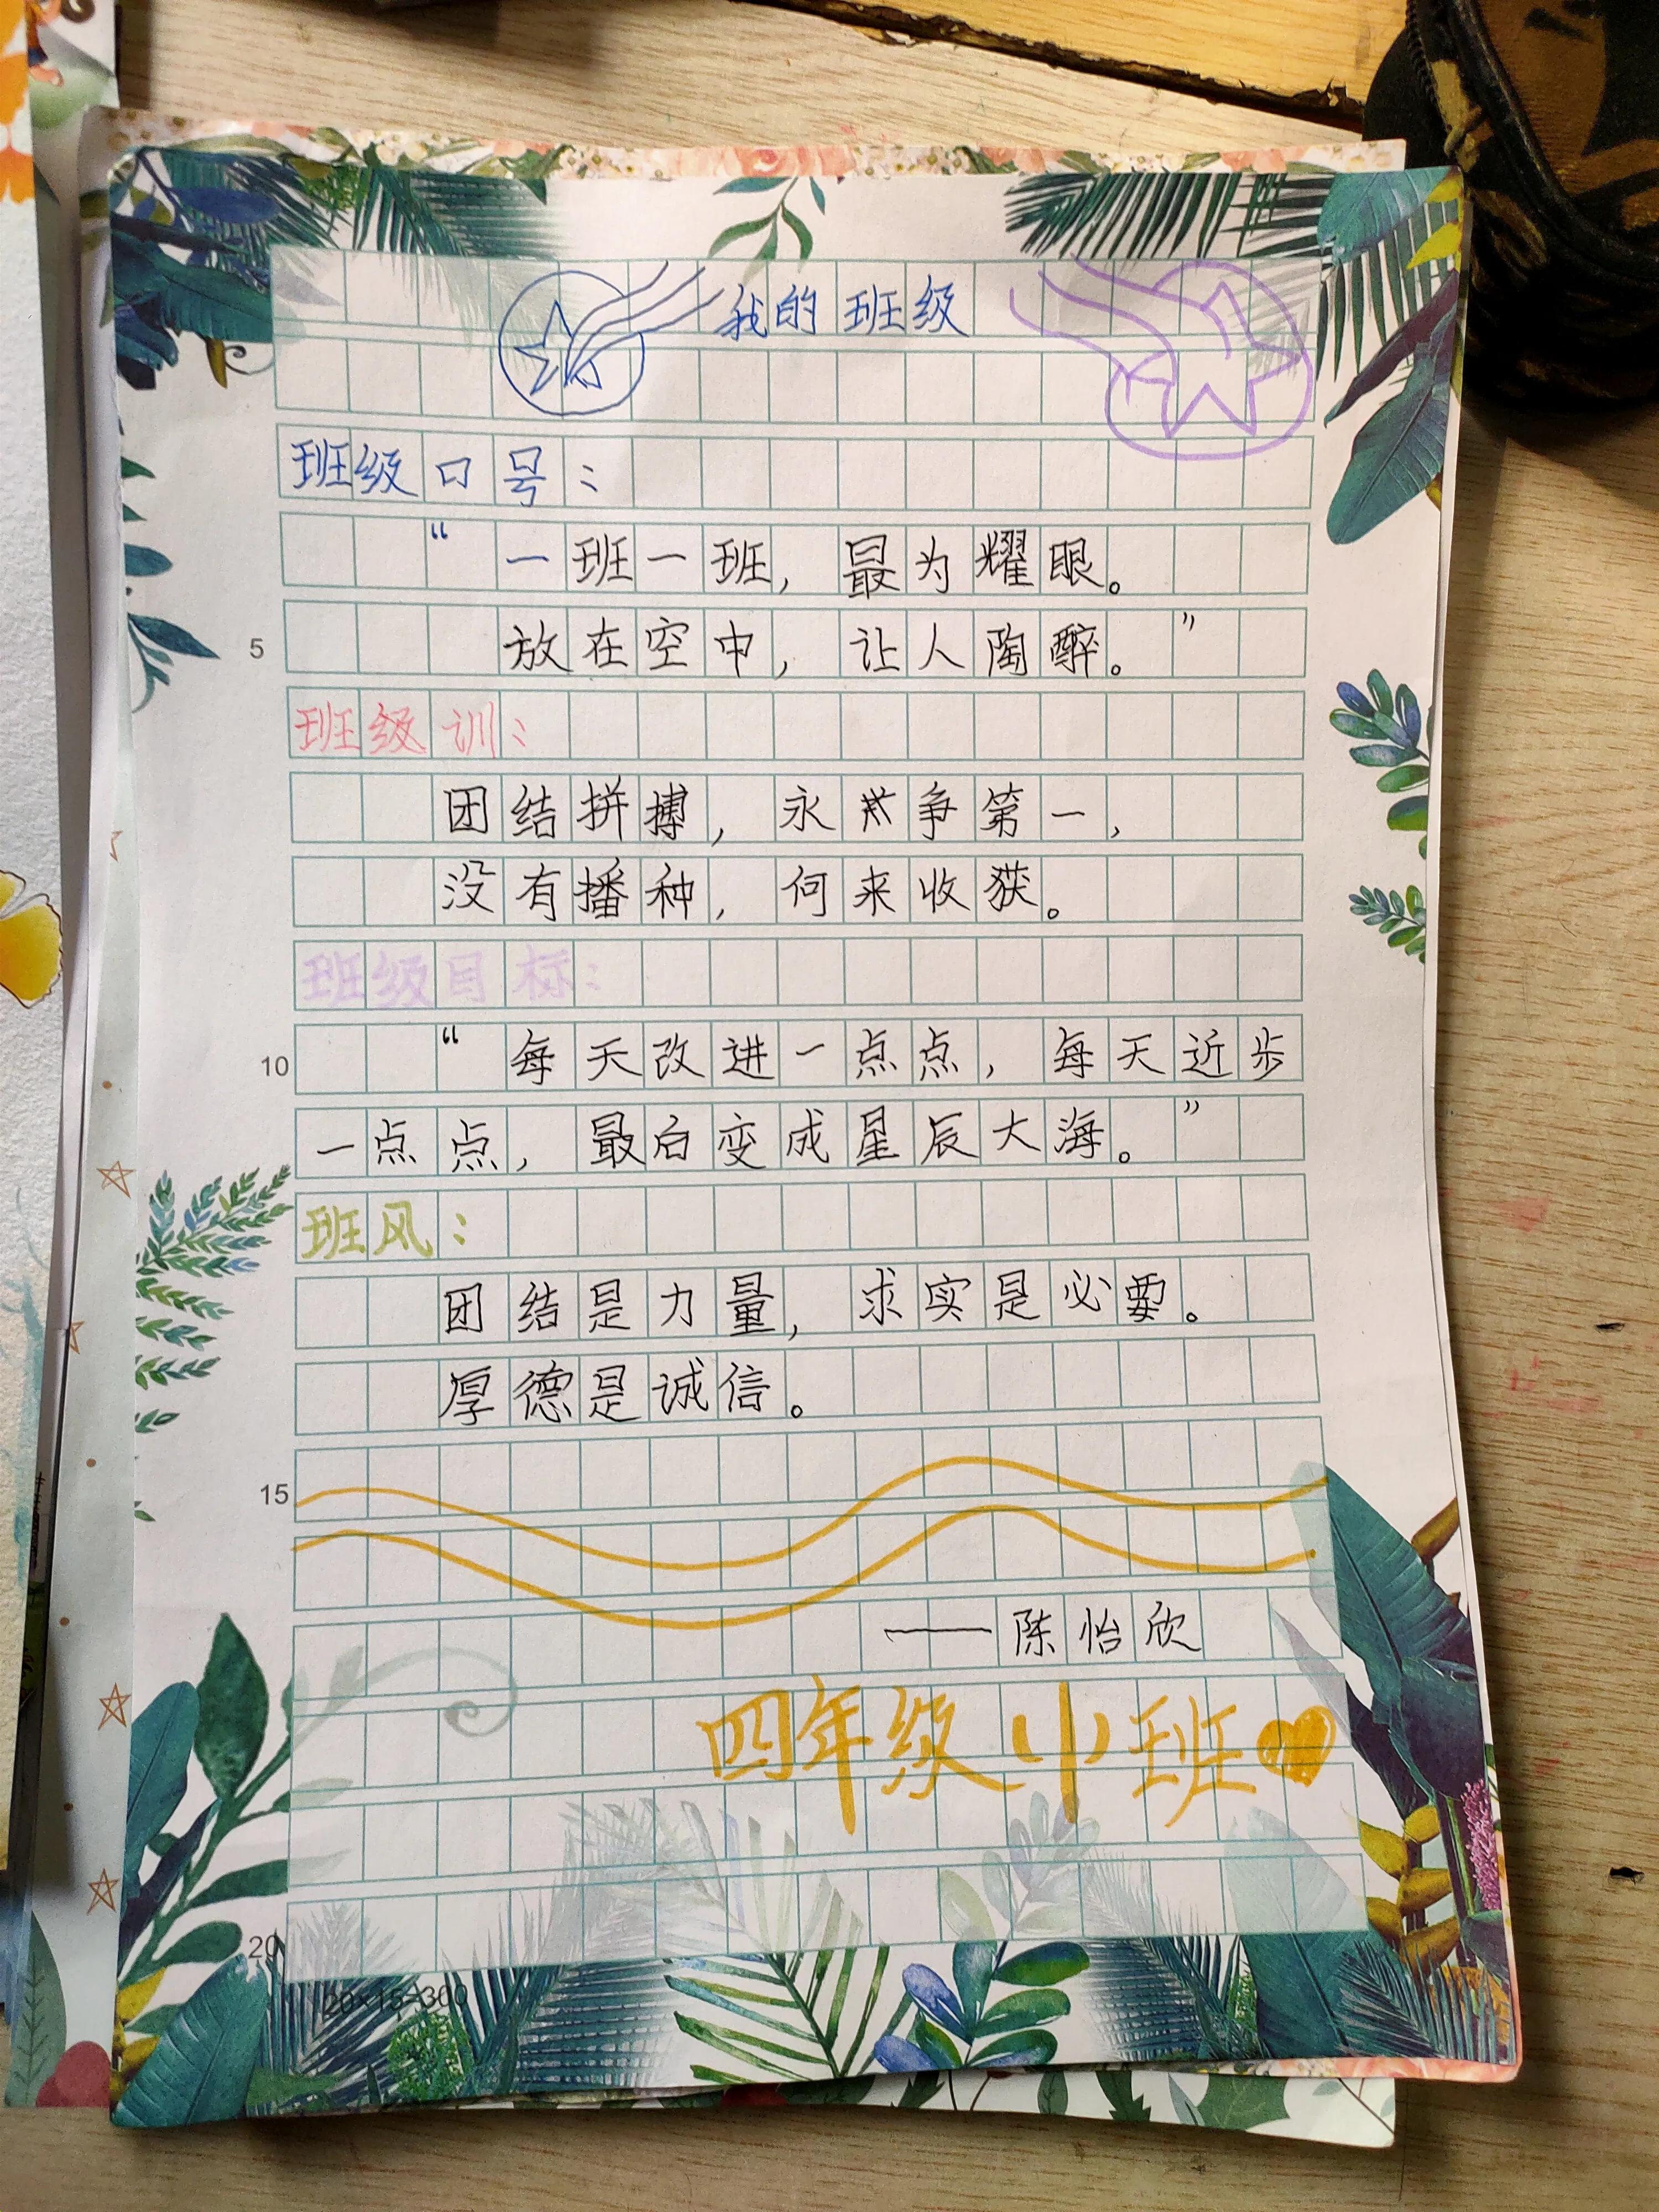 我的班级
班级口号：
“一班一班，最为耀眼。
5
放在空中，让人陶醉。”
班级训：
团结拼搏，永争第一，
没有播种，何来收获。
班级目标：
10
“每天改进一点点，每天近步
一点点，最后变成星辰大海。”
班风：
团结是力量，求实是必要。
厚德是诚信。
15
——陈怡欣
四年级小班
20
20×15=300